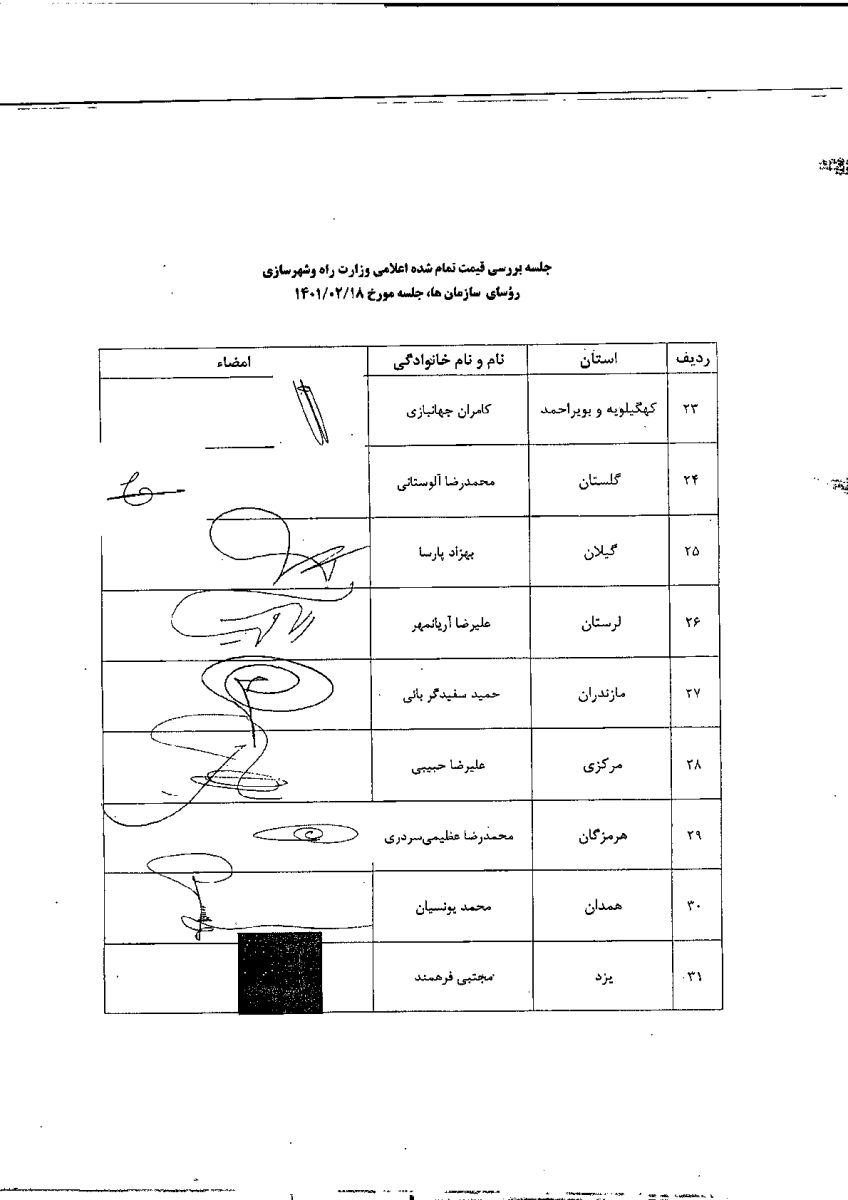 جلسه بررسی قیمت تمام شده اعلامی وزارت راه وشهرسازی
رؤسای سازمان ها، جلسه مورخ ۱۴۰۱/۰۲/۱۸
ردیف استان نام و نام خانوادگی امضاء
۲۳ کهگیلویه و بویراحمد کامران جهانبازی
۲۴ گلستان محمدرضا آلوستانی
۲۵ گیلان بهزاد پارسا
۲۶ لرستان علیرضا آریانمهر
۲۷ مازندران حمید سفیدگر بائی
۲۸ مرکزی علیرضا حبیبی
۲۹ هرمزگان محمدرضا عظیمی‌سردری
۳۰ همدان محمد یونسیان
۳۱ یزد مجتبی فرهمند